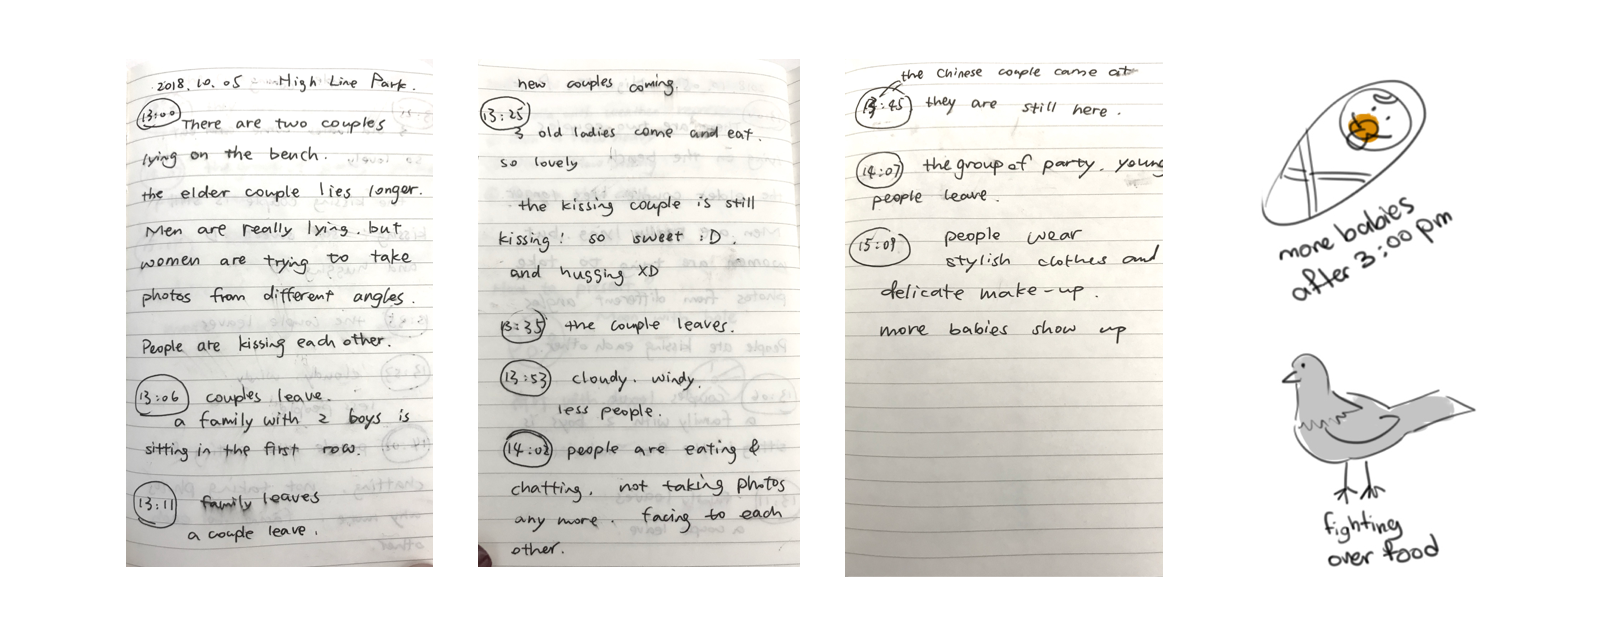 2018.10.05 High Line Park.
13:00
There are two couples
lying on the bench.
the elder couple lies longer.
Men are really lying. but
women are trying to take
photos from different angles.
People are kissing each other.
13:06 couples leave.
a family with 2 boys is
sitting in the first row.
13:11 family leaves
a couple leave.
new couples coming.
13:25
3 old ladies come and eat.
so lovely
the kissing couple is still
kissing! so sweet :D.
and hugging XD
13:35 the couple leaves.
13:53 cloudy. windy.
less people.
14:02 people are eating &
chatting. not taking photos
any more. facing to each
other.
the Chinese couple came at
:45 they are still here.
14:07 the group of party. young
people leave.
15:09 people wear
stylish clothes and
delicate make-up.
more babies show up
more babies
after 3:00 pm
fighting
over food